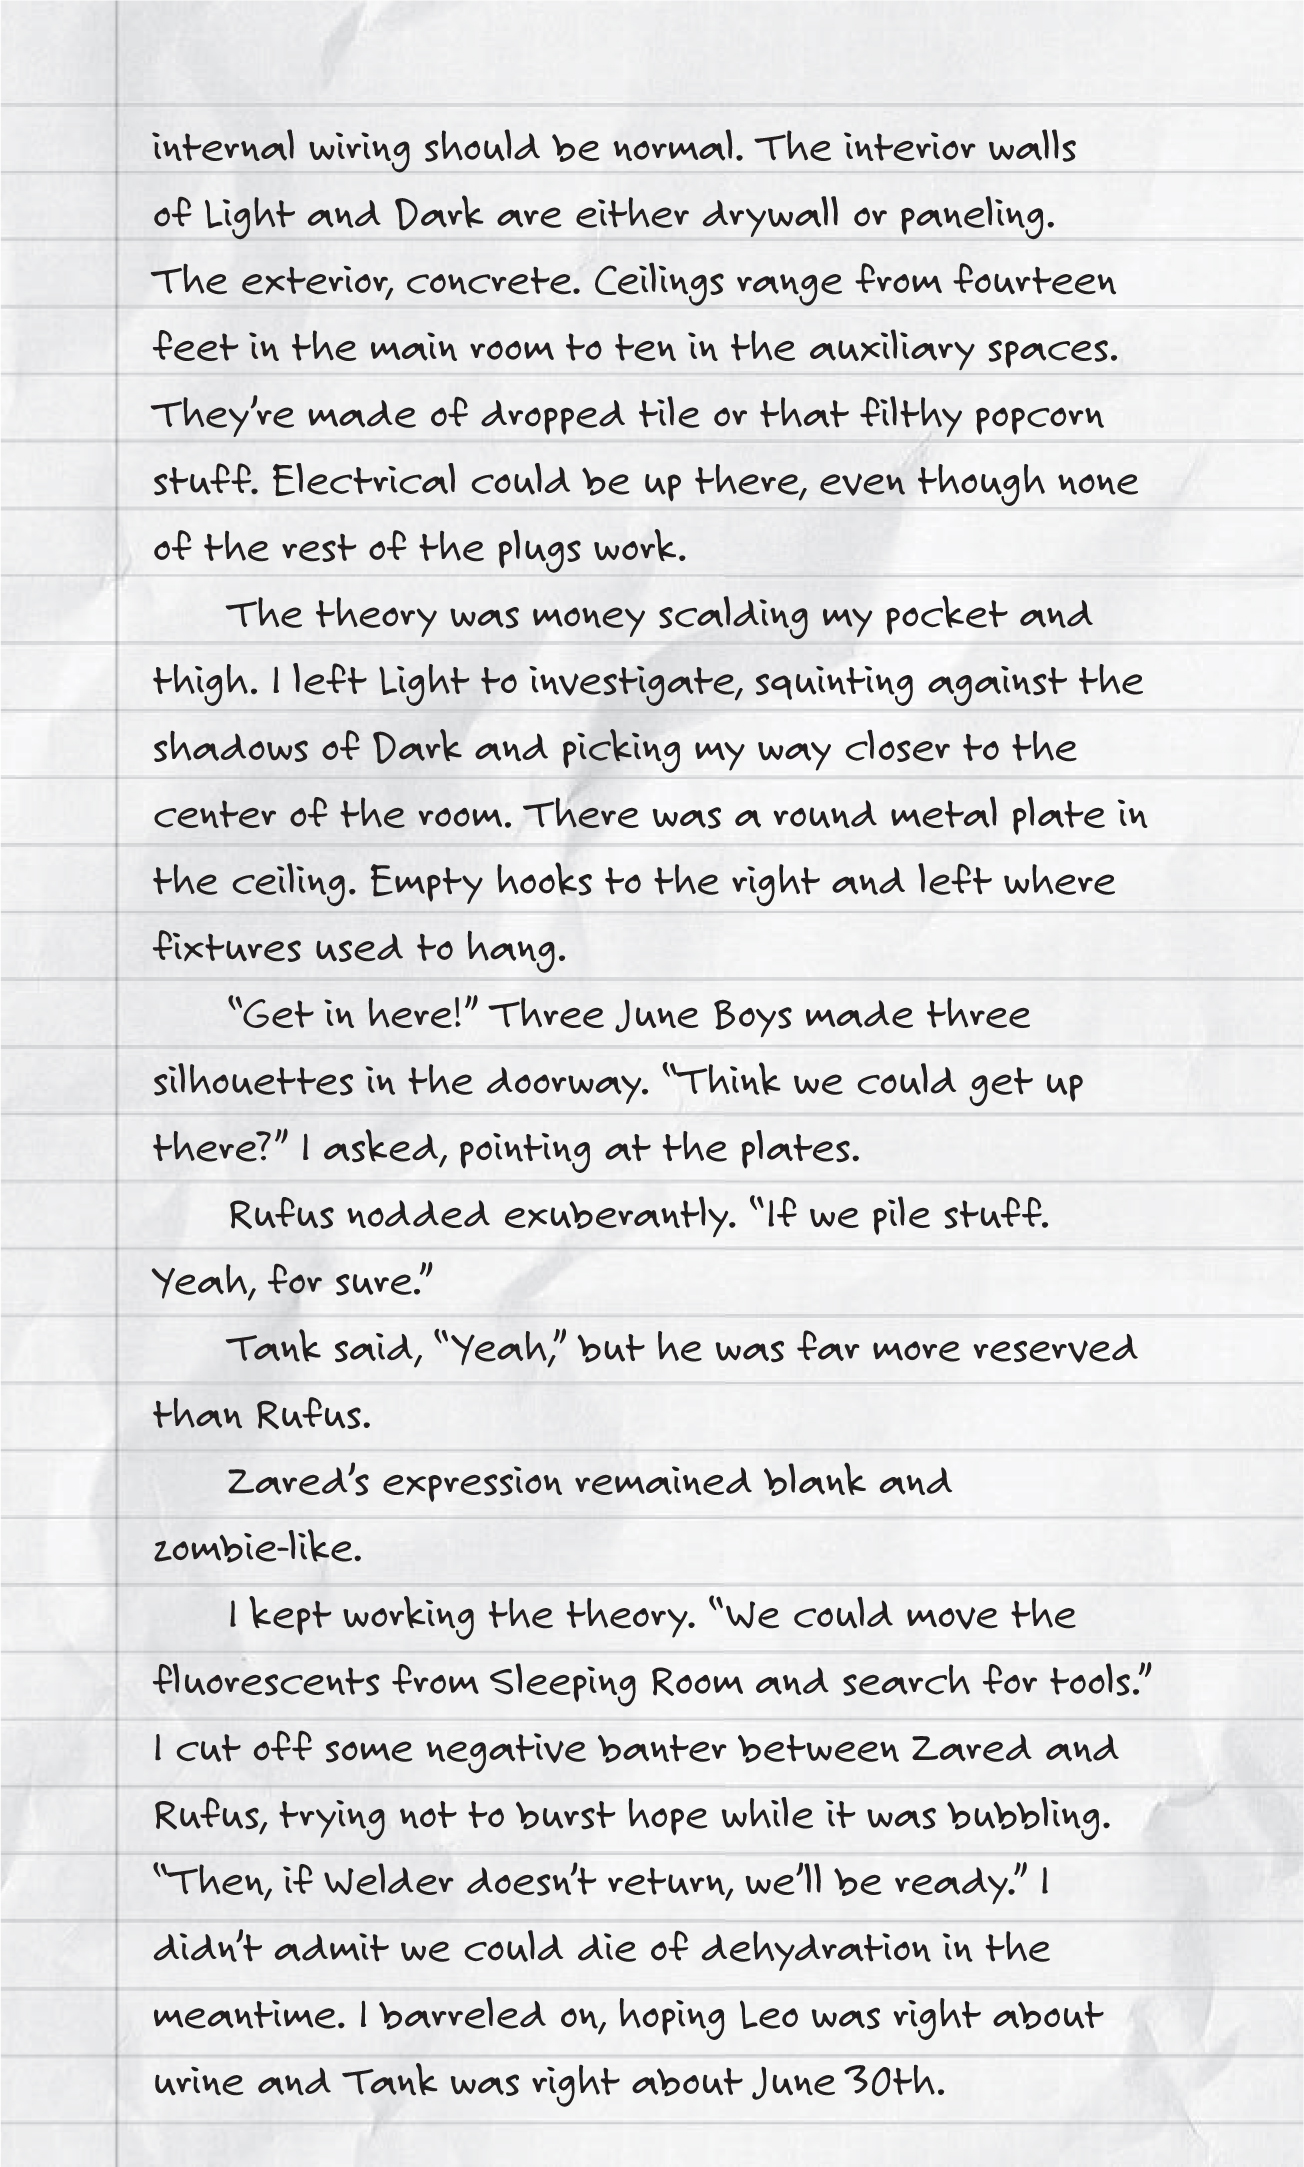 internal wiring should be normal. The interior walls
of Light and Dark are either drywall or paneling.
The exterior, concrete. Ceilings range from fourteen
feet in the main room to ten in the auxiliary spaces.
They’re made of dropped tile or that filthy popcorn
stuff. Electrical could be up there, even though none
of the rest of the plugs work.
The theory was money scalding my pocket and
thigh. I left Light to investigate, squinting against the
shadows of Dark and picking my way closer to the
center of the room. There was a round metal plate in
the ceiling. Empty hooks to the right and left where
fixtures used to hang.
“Get in here!” Three June Boys made three
silhouettes in the doorway. “Think we could get up
there?” I asked, pointing at the plates.
Rufus nodded exuberantly. “If we pile stuff.
Yeah, for sure.”
Tank said, “Yeah,” but he was far more reserved
than Rufus.
Zared’s expression remained blank and
zombie-like.
I kept working the theory. “We could move the
fluorescents from Sleeping Room and search for tools.”
I cut off some negative banter between Zared and
Rufus, trying not to burst hope while it was bubbling.
“Then, if Welder doesn’t return, we’ll be ready.” I
didn’t admit we could die of dehydration in the
meantime. I barreled on, hoping Leo was right about
urine and Tank was right about June 30th.